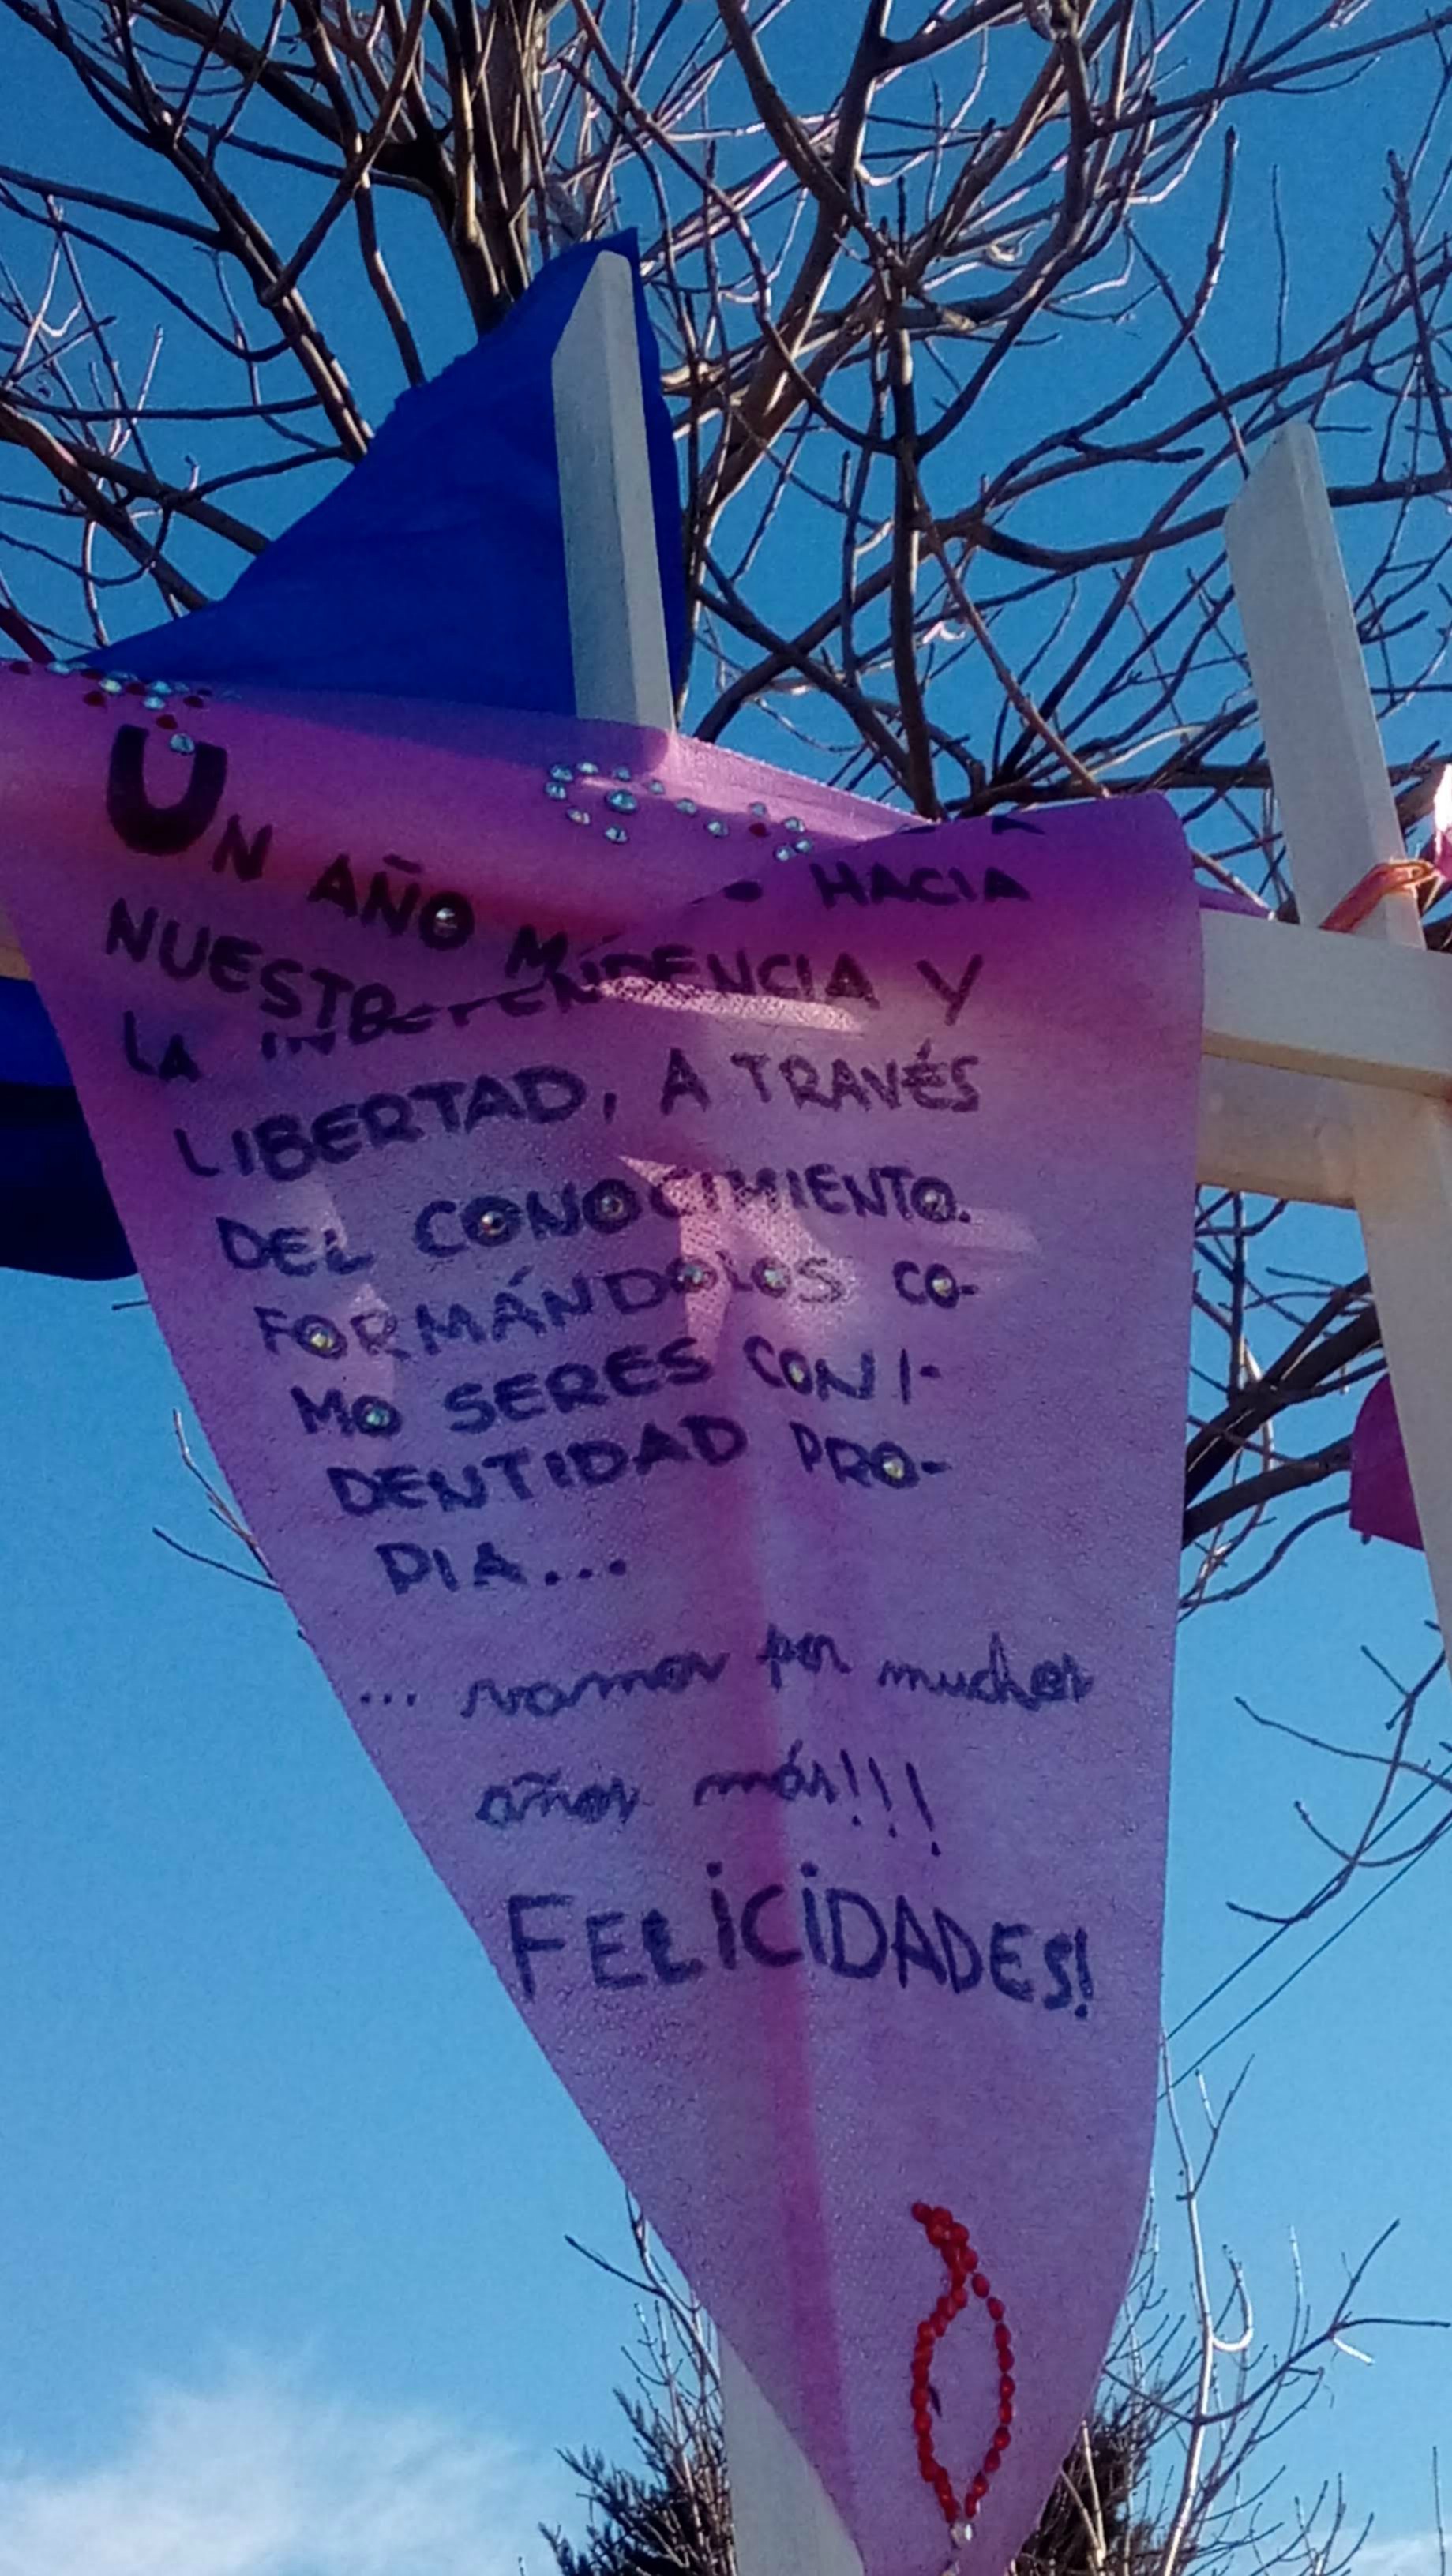 UN AÑO M
HACIA
NUESTR
LA INDEPENDENCIA Y
LIBERTAD, A TRAVÉS
DEL CONOCIMIENTO.
FORMÁNDOLOS CO-
MO SERES CON I-
DENTIDAD PRO-
PIA...
... vamos por muchos
años más!!!
FELICIDADES!